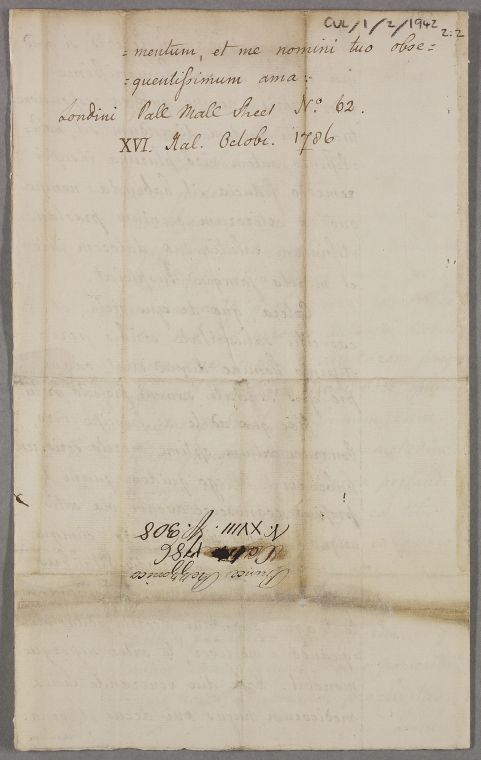 CUL/1/2/1942
2:2
=mentum, et me nomini tuo obse=
=quentissimum ama.
Londini Pall Mall Street N.o 62.
XVI. Kal. Octobr. 1786
Prince Rezzonico
1786
N. XVIII. p. 308